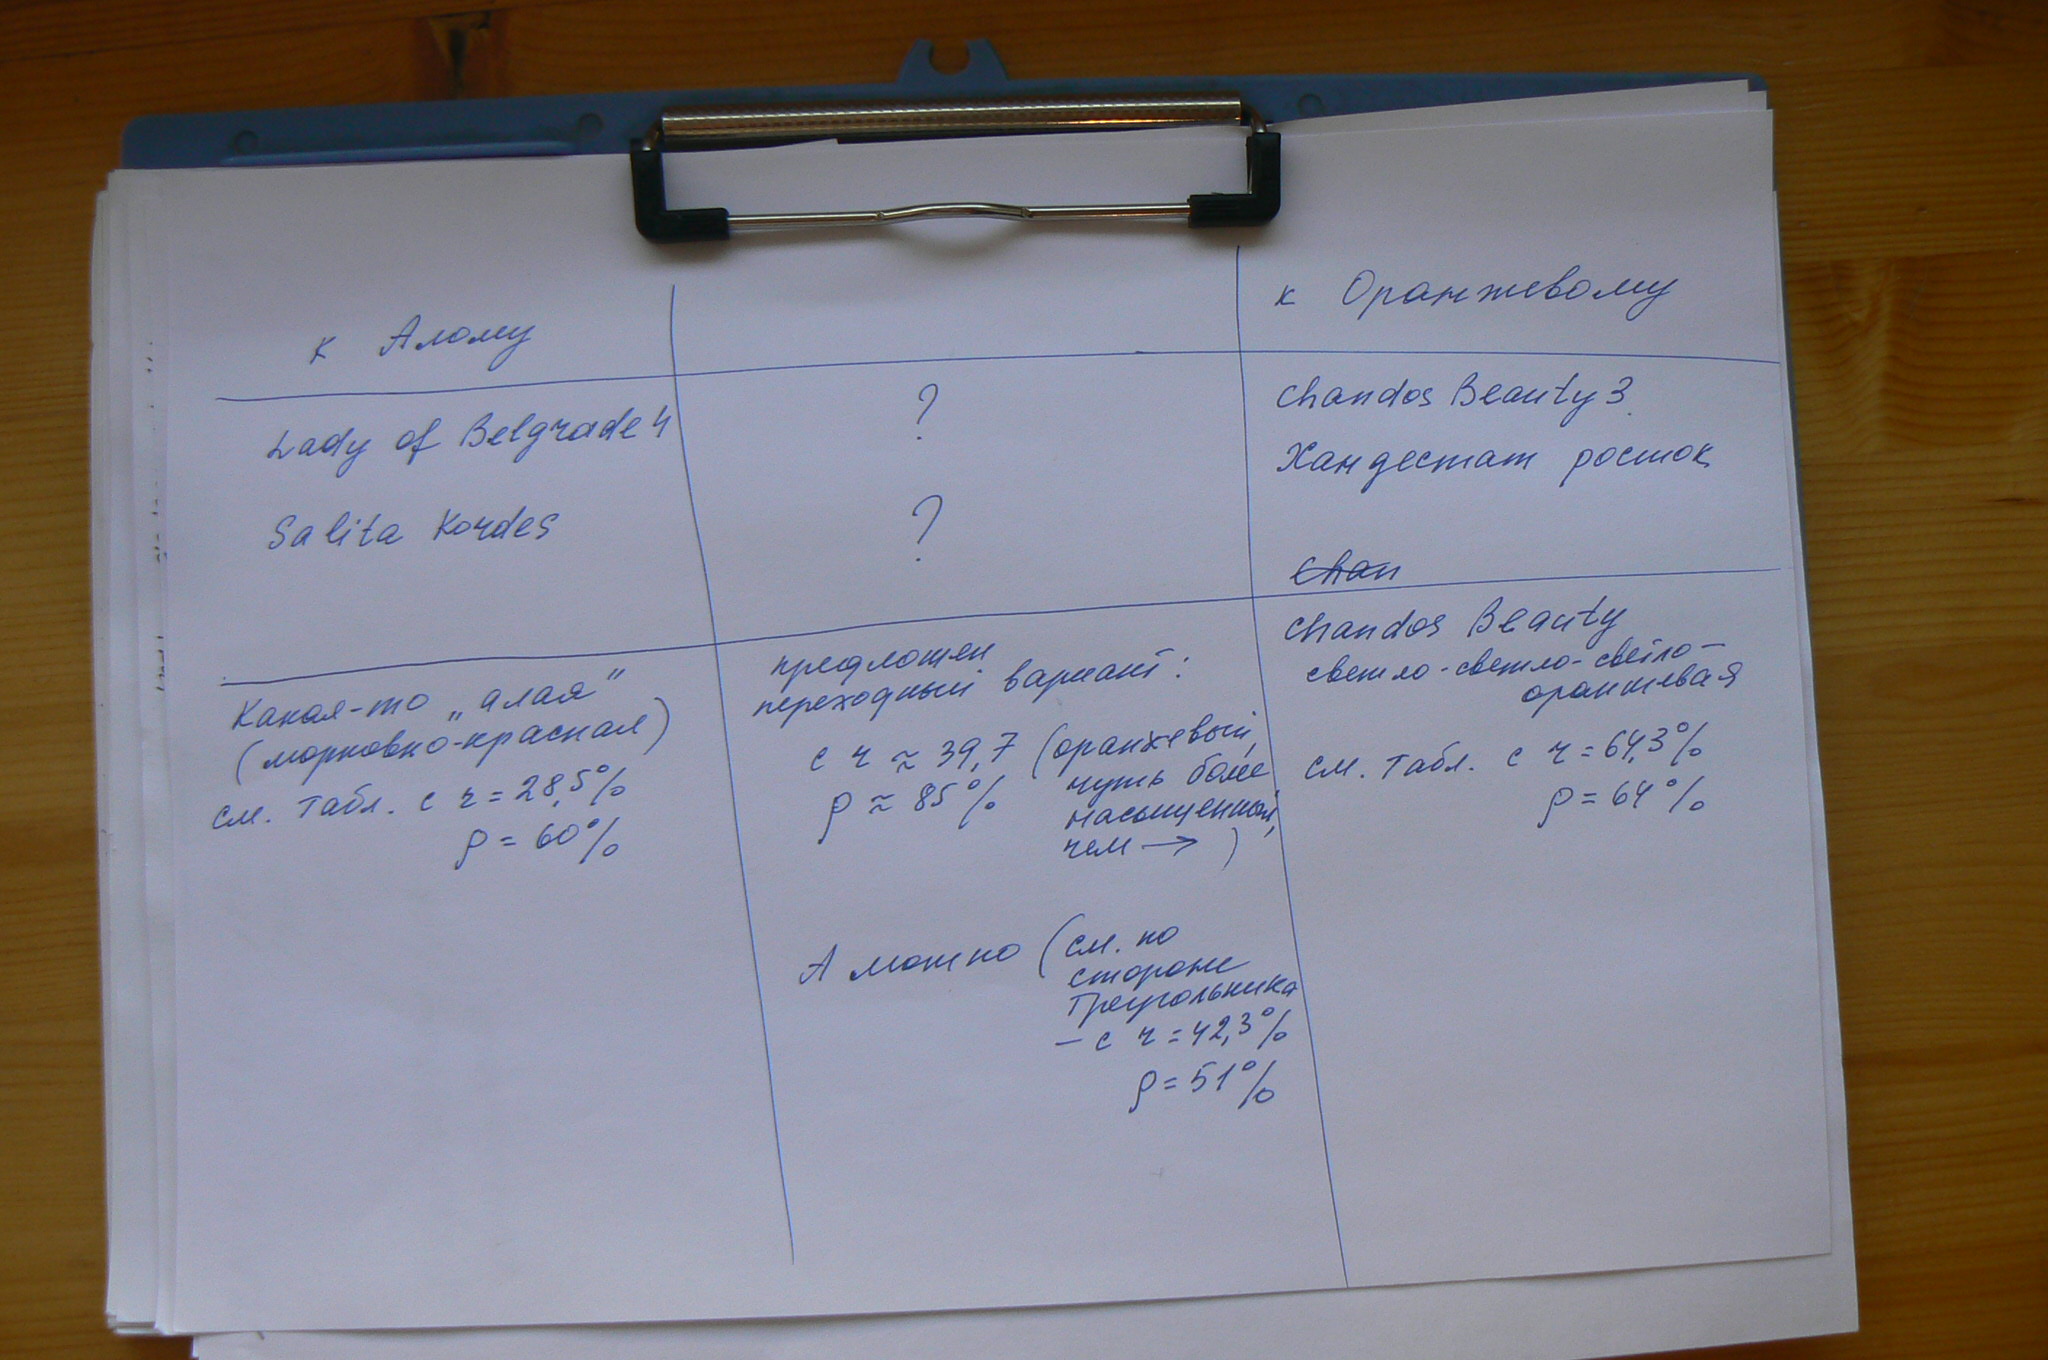 к Алому
к Оранжевому
Lady of Belgrade 4
?
Chandos Beauty 3
Salita Kordes
?
Хандестат росток
Chan
Какая-то „алая"
(морковно-красная)
см. табл. с r = 28,5%
ρ = 60%
предложен
переходный вариант:
с r ≈ 39,7 (оранжевый,
ρ ≈ 85% чуть более
насыщенный,
чем → )
А можно (см. по
стороне
Треугольника
— с r = 42,3%
ρ = 51%
Chandos Beauty
светло-светло-светло-
оранжевая
см. табл. с r = 64,3%
ρ = 64%